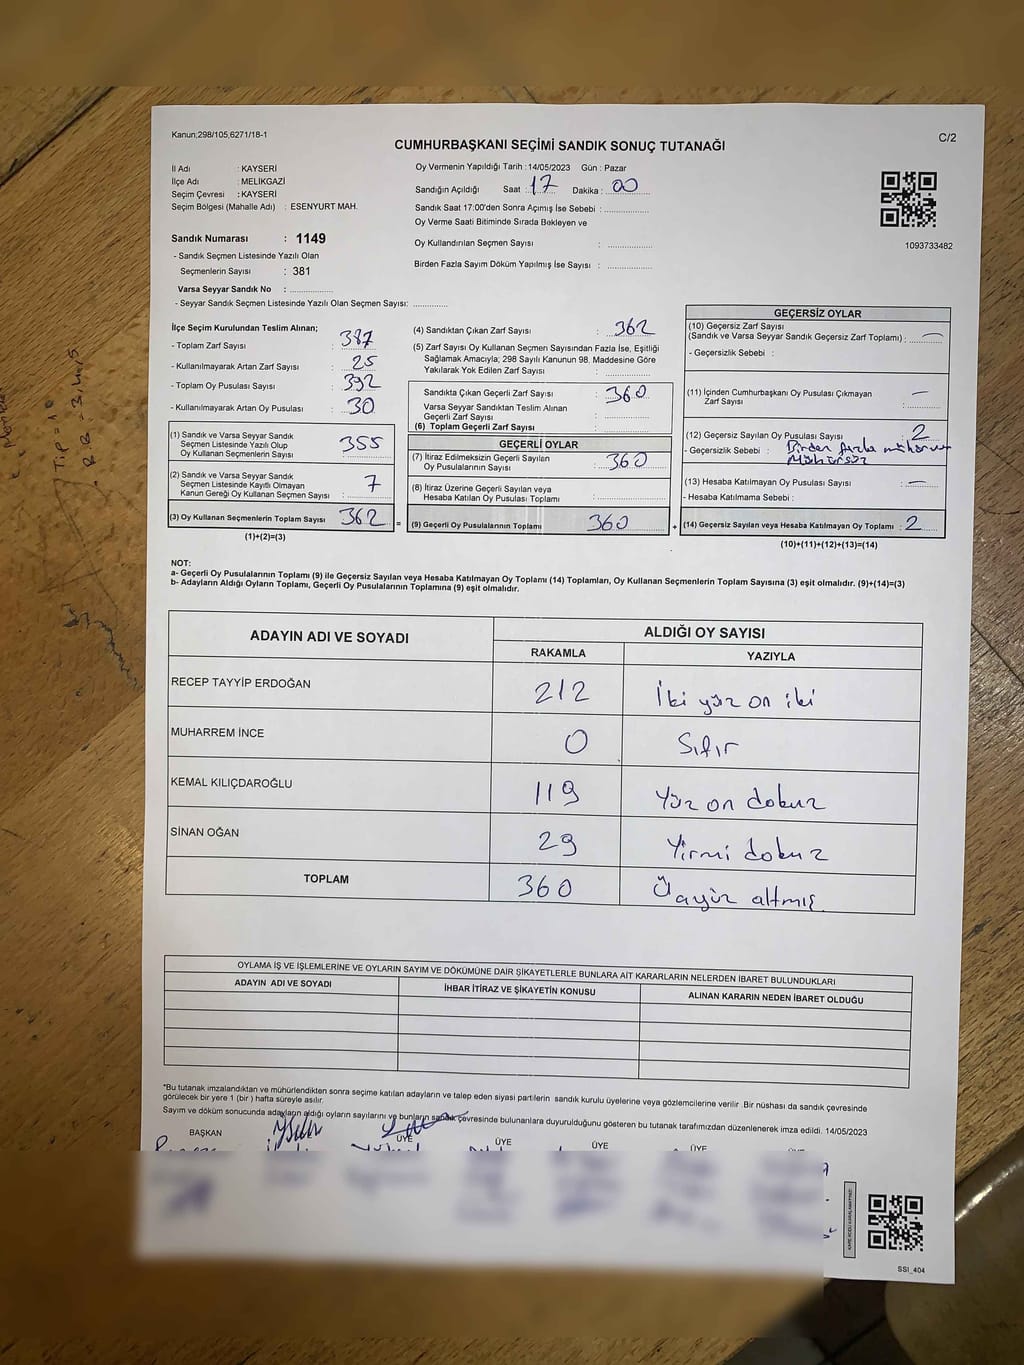 Kanun;298/105,6271/18-1
C/2
CUMHURBAŞKANI SEÇİMİ SANDIK SONUÇ TUTANAĞI
İl Adı : KAYSERİ
İlçe Adı : MELİKGAZİ
Seçim Çevresi : KAYSERİ
Seçim Bölgesi (Mahalle Adı) : ESENYURT MAH.
Sandık Numarası : 1149
- Sandık Seçmen Listesinde Yazılı Olan
Seçmenlerin Sayısı : 381
Varsa Seyyar Sandık No : ..............
- Seyyar Sandık Seçmen Listesinde Yazılı Olan Seçmen Sayısı: ............
Oy Vermenin Yapıldığı Tarih : 14/05/2023 Gün : Pazar
Sandığın Açıldığı Saat : 17 Dakika : 00
Sandık Saat 17:00'den Sonra Açımış İse Sebebi : ..............
Oy Verme Saati Bitiminde Sırada Bekleyen ve
Oy Kullandırılan Seçmen Sayısı : ..............
Birden Fazla Sayım Döküm Yapılmış İse Sayısı : ..............
1093733482
İlçe Seçim Kurulundan Teslim Alınan;
- Toplam Zarf Sayısı : 387
- Kullanılmayarak Artan Zarf Sayısı : 25
- Toplam Oy Pusulası Sayısı : 392
- Kullanılmayarak Artan Oy Pusulası : 30
(1) Sandık ve Varsa Seyyar Sandık
Seçmen Listesinde Yazılı Olup
Oy Kullanan Seçmenlerin Sayısı : 355
(2) Sandık ve Varsa Seyyar Sandık
Seçmen Listesinde Kayıtlı Olmayan
Kanun Gereği Oy Kullanan Seçmen Sayısı : 7
(3) Oy Kullanan Seçmenlerin Toplam Sayısı : 362 =
(1)+(2)=(3)
(4) Sandıktan Çıkan Zarf Sayısı : 362
(5) Zarf Sayısı Oy Kullanan Seçmen Sayısından Fazla İse, Eşitliği
Sağlamak Amacıyla; 298 Sayılı Kanunun 98. Maddesine Göre
Yakılarak Yok Edilen Zarf Sayısı : ..............
Sandıkta Çıkan Geçerli Zarf Sayısı : 360
Varsa Seyyar Sandıktan Teslim Alınan
Geçerli Zarf Sayısı : ..............
(6) Toplam Geçerli Zarf Sayısı : ..............
GEÇERLİ OYLAR
(7) İtiraz Edilmeksizin Geçerli Sayılan
Oy Pusulalarının Sayısı : 360
(8) İtiraz Üzerine Geçerli Sayılan veya
Hesaba Katılan Oy Pusulası Toplamı : ..............
(9) Geçerli Oy Pusulalarının Toplamı : 360 +
GEÇERSİZ OYLAR
(10) Geçersiz Zarf Sayısı
(Sandık ve Varsa Seyyar Sandık Geçersiz Zarf Toplamı) : —
- Geçersizlik Sebebi :
(11) İçinden Cumhurbaşkanı Oy Pusulası Çıkmayan
Zarf Sayısı : —
(12) Geçersiz Sayılan Oy Pusulası Sayısı : 2
- Geçersizlik Sebebi : Birden fazla mühür
Mühürsüz
(13) Hesaba Katılmayan Oy Pusulası Sayısı : —
- Hesaba Katılmama Sebebi :
(14) Geçersiz Sayılan veya Hesaba Katılmayan Oy Toplamı : 2
(10)+(11)+(12)+(13)=(14)
NOT:
a- Geçerli Oy Pusulalarının Toplamı (9) ile Geçersiz Sayılan veya Hesaba Katılmayan Oy Toplamı (14) Toplamları, Oy Kullanan Seçmenlerin Toplam Sayısına (3) eşit olmalıdır. (9)+(14)=(3)
b- Adayların Aldığı Oyların Toplamı, Geçerli Oy Pusulalarının Toplamına (9) eşit olmalıdır.
ADAYIN ADI VE SOYADI ALDIĞI OY SAYISI
RAKAMLA YAZIYLA
RECEP TAYYİP ERDOĞAN 212 İki yüz on iki
MUHARREM İNCE 0 Sıfır
KEMAL KILIÇDAROĞLU 119 Yüz on dokuz
SİNAN OĞAN 29 Yirmi dokuz
TOPLAM 360 Üçyüz altmış
OYLAMA İŞ VE İŞLEMLERİNE VE OYLARIN SAYIM VE DÖKÜMÜNE DAİR ŞİKAYETLERLE BUNLARA AİT KARARLARIN NELERDEN İBARET BULUNDUKLARI
ADAYIN ADI VE SOYADI İHBAR İTİRAZ VE ŞİKAYETİN KONUSU ALINAN KARARIN NEDEN İBARET OLDUĞU
*Bu tutanak imzalandıktan ve mühürlendikten sonra seçime katılan adayların ve talep eden siyasi partilerin sandık kurulu üyelerine veya gözlemcilerine verilir .Bir nüshası da sandık çevresinde
görülecek bir yere 1 (bir ) hafta süreyle asılır.
Sayım ve döküm sonucunda adayların aldığı oyların sayılarını ve bunların sandık çevresinde bulunanlara duyurulduğunu gösteren bu tutanak tarafımızdan düzenlenerek imza edildi. 14/05/2023
BAŞKAN ÜYE ÜYE ÜYE ÜYE
SSI_404